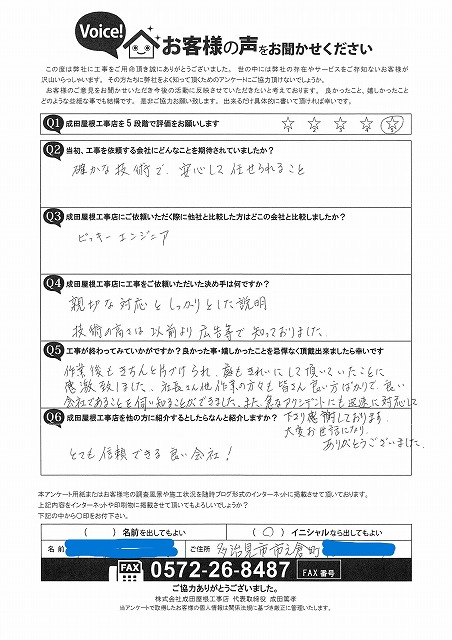 Voice!
お客様の声をお聞かせください
この度は弊社に工事をご用命頂き誠にありがとうございました。世の中には弊社の存在やサービスをご存知ないお客様が
沢山いらっしゃいます。その方たちに弊社をよく知って頂くためのアンケートにご協力頂けないでしょうか。
お客様のご意見をお聞かせいただき今後の活動に反映させていただきたいと考えております。良かったこと、嬉しかったこと
どのような些細な事でも結構です。是非ご協力お願い致します。出来るだけ具体的に書いて頂ければ幸いです。
Q1 成田屋根工事店を5段階で評価をお願いします ☆ ☆ ☆ ☆ ☆
Q2 当初、工事を依頼する会社にどんなことを期待されていましたか?
確かな技術で、安心して任せられること
Q3 成田屋根工事店にご依頼いただく際に他社と比較した方はどこの会社と比較しましたか?
ビッキーエンジニア
Q4 成田屋根工事店に工事をご依頼いただいた決め手は何ですか?
親切な対応としっかりとした説明
技術の高さは以前より広告等で知っておりました。
Q5 工事が終わってみていかがですか?良かった事・嬉しかったことを忌憚なく頂戴出来ましたら幸いです
作業後もきちんと片づけられ、庭もきれいにして頂いていたことに
感激致しました。社長さん他作業の方々も皆さん良い方ばかりで、良い
会社であることを伺い知ることができました。また、急なアクシデントにも迅速に対応して
下さり感謝しております。
大変お世話になり
ありがとうございました。
Q6 成田屋根工事店を他の方に紹介するとしたらなんと紹介しますか?
とても信頼できる良い会社!
本アンケート用紙またはお客様宅の調査風景や施工状況を随時ブログ形式のインターネットに掲載させて頂いております。
上記内容をインターネットや印刷物に掲載させて頂いてもよろしいでしょうか?
下記の中から〇印をお付下さい。
( ) 名前を出してもよい ( ○ ) イニシャルなら出してもよい
名前 ご住所 多治見市市之倉町
FAX 0572-26-8487 FAX番号
ご協力ありがとうございました。
株式会社成田屋根工事店 代表取締役 成田篤孝
当アンケートで取得したお客様の個人情報は関係法規に基づき厳正に管理いたします。